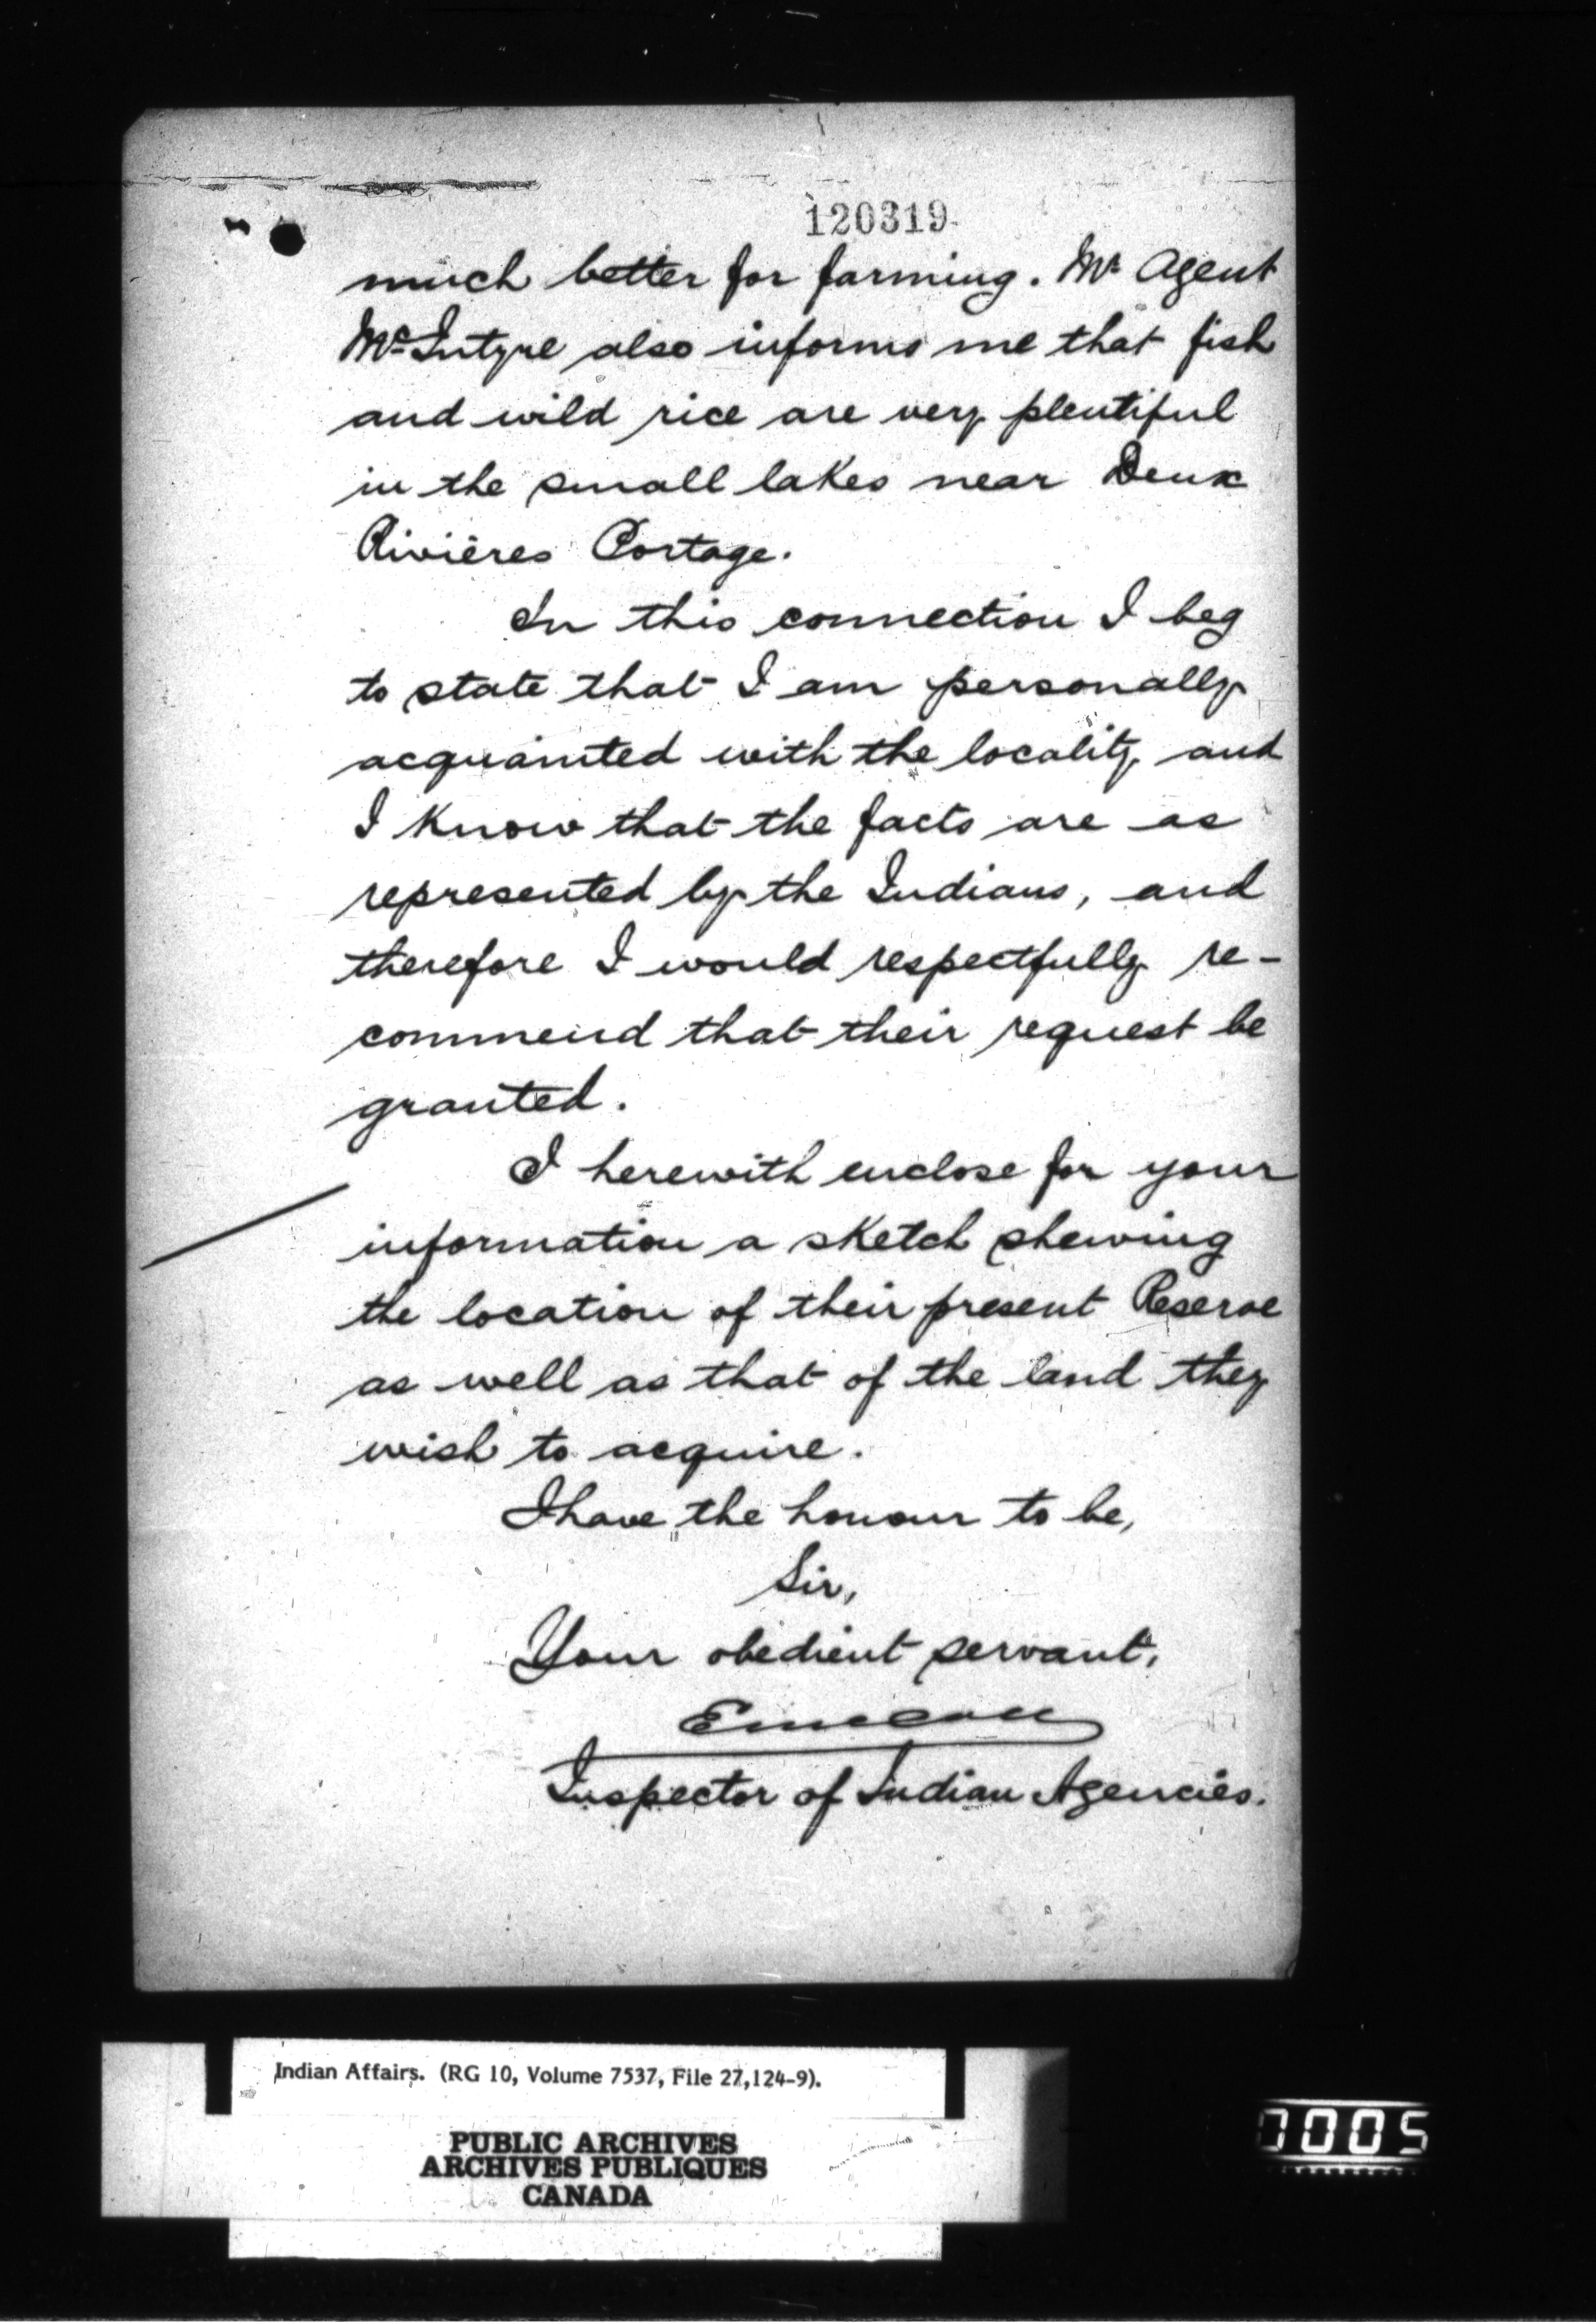 120319
much better for farming. Mr Agent
McIntyre also informs me that fish
and wild rice are very plentiful
in the small lakes near Deux
Rivières Portage.
In this connection I beg
to state that I am personally
acquainted with the locality and
I know that the facts are as
represented by the Indians, and
therefore I would respectfully re-
commend that their request be
granted.
I herewith enclose for your
information a sketch shewing
the location of their present Reserve
as well as that of the land they
wish to acquire.
I have the honour to be,
Sir,
Your obedient servant,
Inspector of Indian Agencies.
Indian Affairs. (RG 10, Volume 7537, File 27,124-9).
PUBLIC ARCHIVES
ARCHIVES PUBLIQUES
CANADA
0005